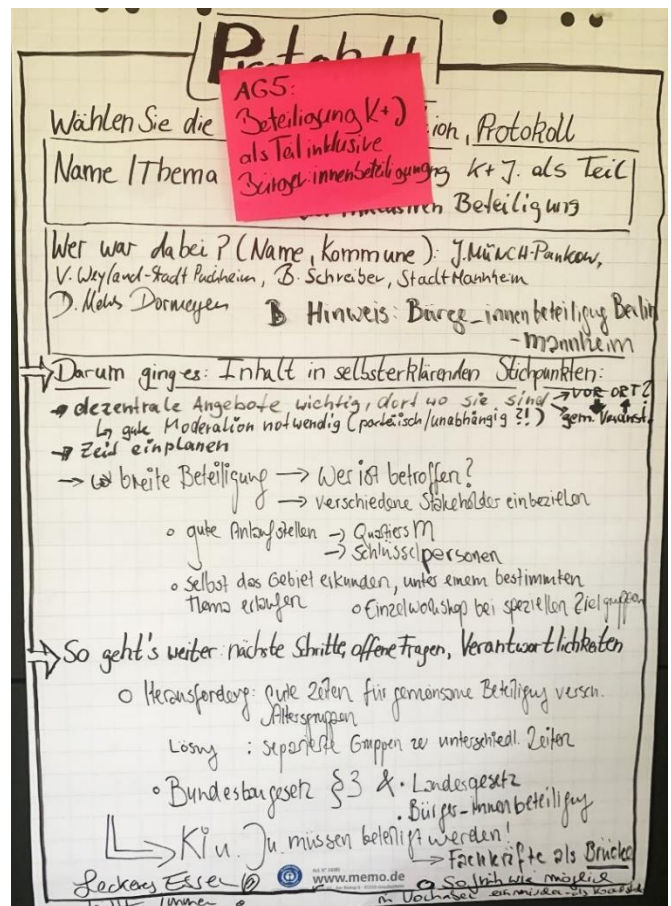 Protokoll
AG5:
Beteiligung K+J
als Teil inklusive
Bürger:innenbeteiligung
Wählen Sie die ion, Protokoll
Name / Thema ng K+J. als Teil
inklusiven Beteiligung
Wer war dabei? (Name, Kommune): J. Münch-Pankow,
V. Weyland-Stadt Puchheim, B. Schreiber, Stadt Mannheim
D. Mohs Dormagen Hinweis: Bürge_innenbeteiligug Berlin
- Mannheim
Darum ging es: Inhalt in selbsterklärenden Stichpunkten:
→ dezentrale Angebote wichtig, dort wo sie sind → VOR ORT
↳ gute Moderation notwendig (parteiisch/unabhängig ?!) gem. Veranst.
→ Zeit einplanen
→ breite Beteiligung → Wer ist betroffen?
→ verschiedene Stakeholder einbeziehen
• gute Anlaufstellen → Quartiers M
→ Schlüsselpersonen
• selbst das Gebiet erkunden, unter einem bestimmten
Thema erlaufen • Einzelworkshop bei speziellen Zielgruppen
So geht's weiter: nächste Schritte, offene Fragen, Verantwortlichkeiten
○ Herausforderg: gute Zeiten für gemeinsame Beteiligug versch.
Altersgruppen
Lösug : separierte Gruppen zu unterschiedl. Zeiten
• Bundesbaugesetz §3 & • Landesgesetz
• Bürger-innenbeteiligug
Ki u. Ju. müssen beteiligt werden!
→ Fachkräfte als Brücke
Leckeres Essen
www.memo.de
So früh wie möglich